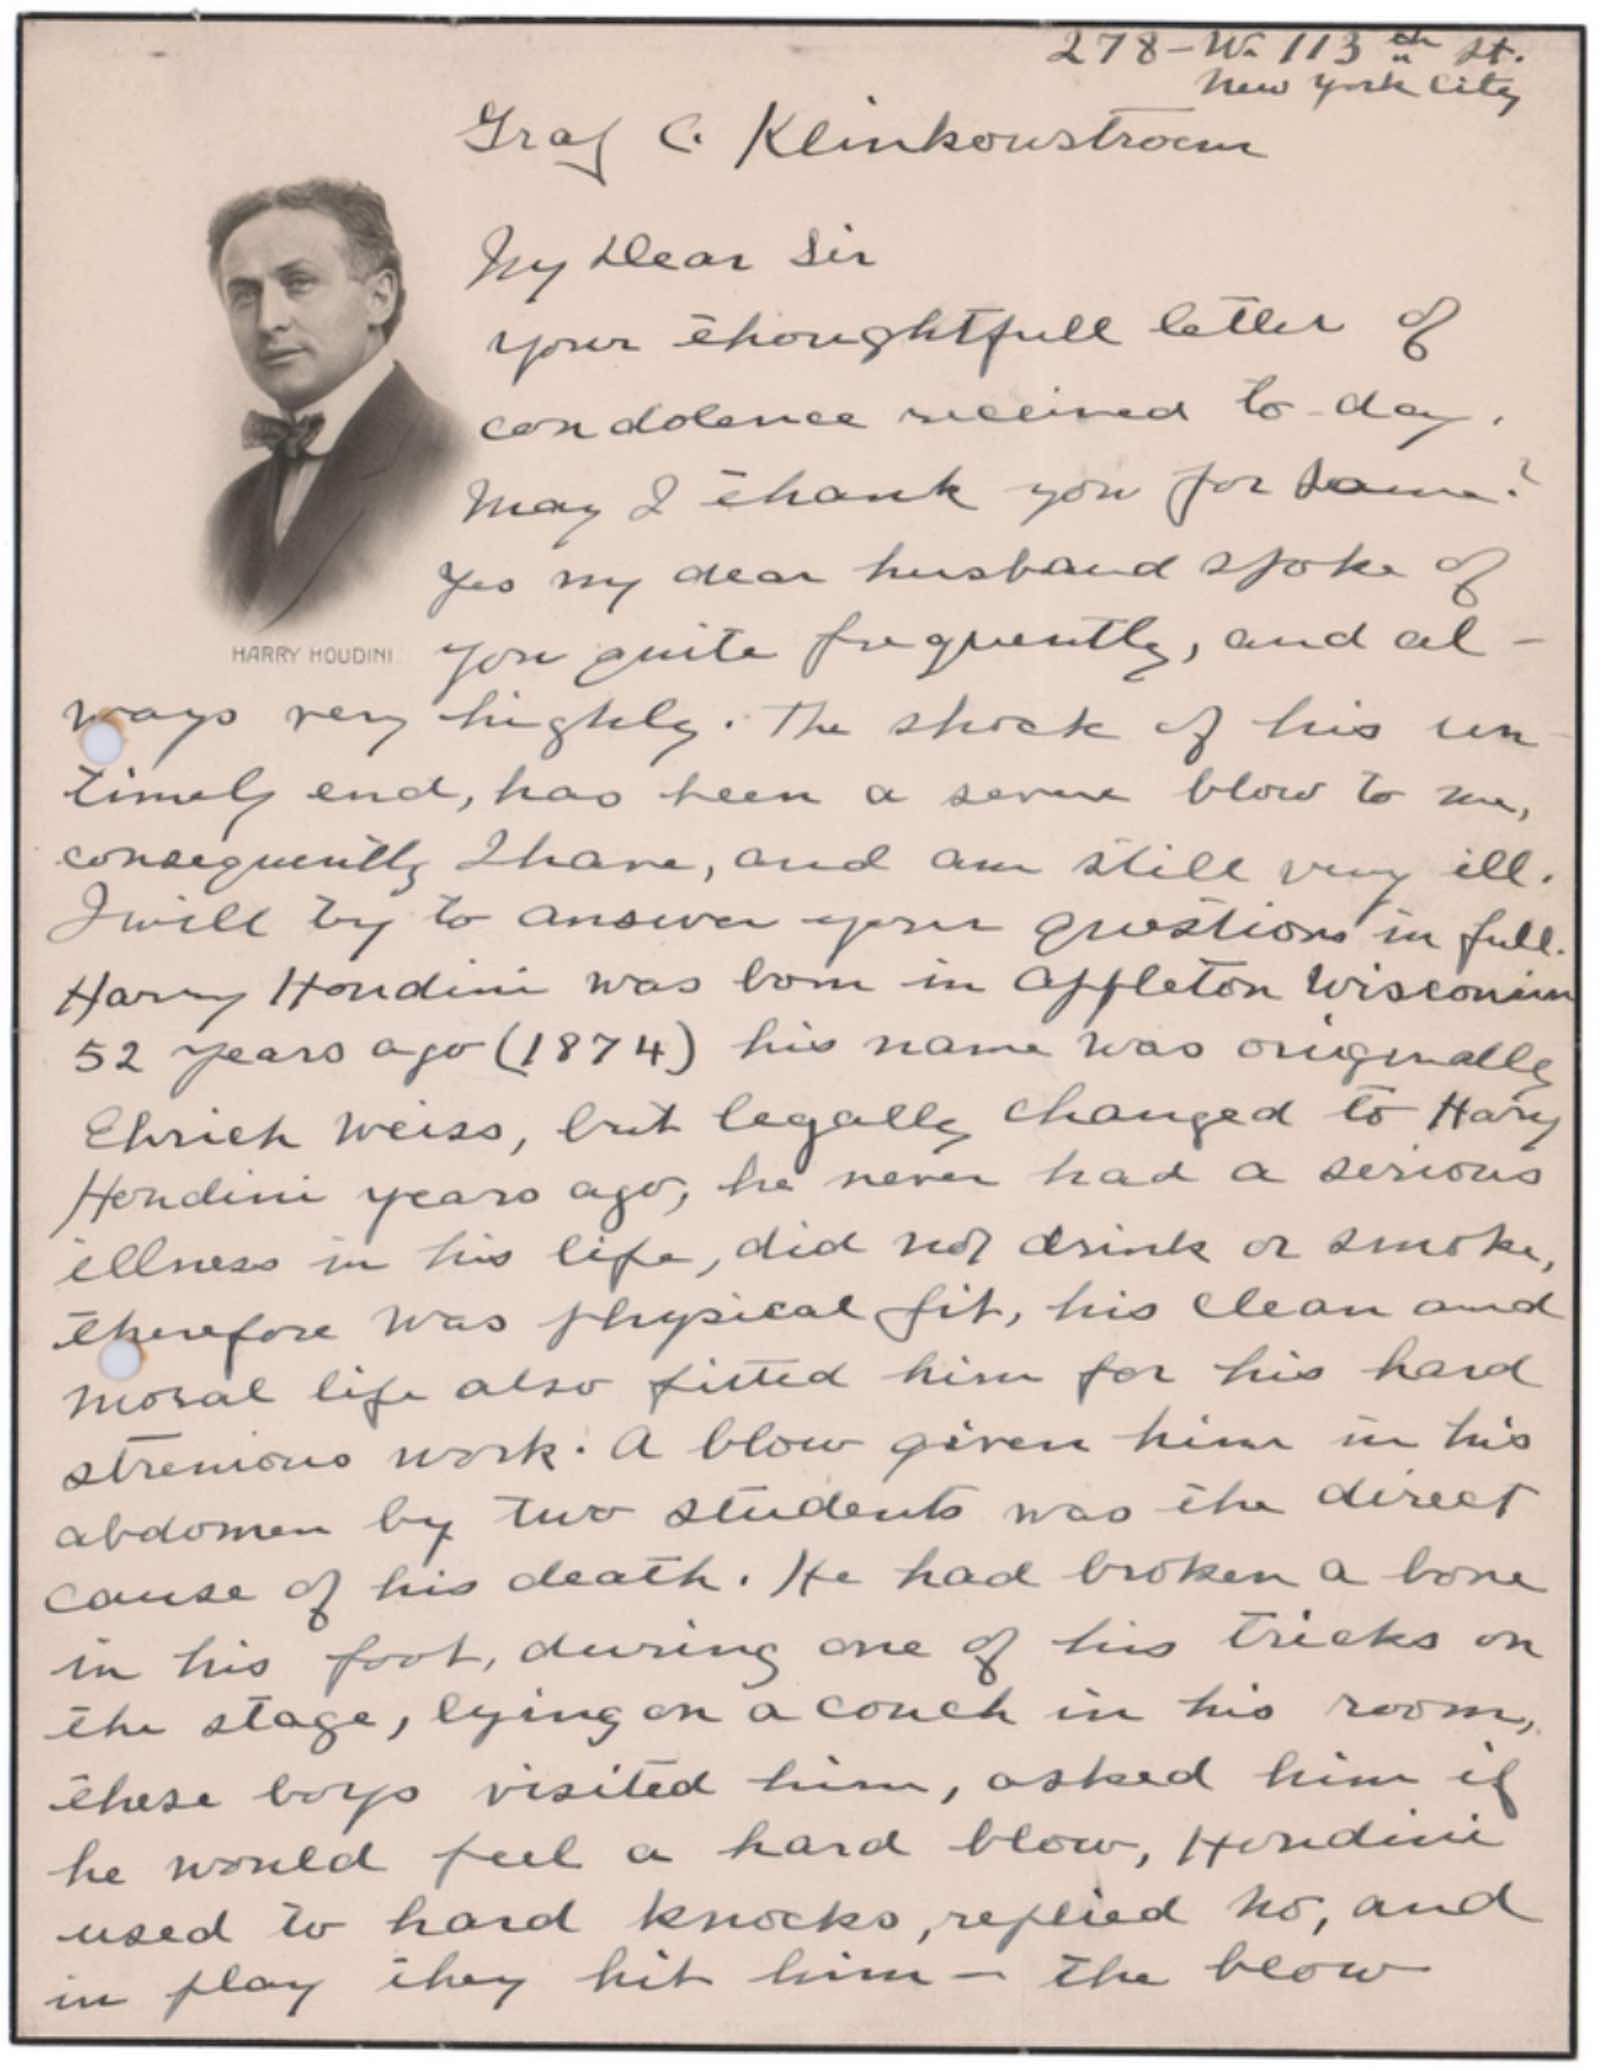 278-W. 113th St.
New York City
Graf C. Klinkowstroem
My Dear Sir
Your thoughtfull letter of
condolence received to-day.
May I thank you for same?
Yes my dear husband spoke of
you quite frequently, and al-
HARRY HOUDINI
ways very highly. The shock of his un-
timely end, has been a severe blow to me,
consequently I have, and am still very ill.
I will try to answer your questions in full.
Harry Houdini was born in Appleton Wisconsin
52 years ago (1874) his name was originally
Ehrich Weiss, but legally changed to Harry
Houdini years ago, he never had a serious
illness in his life, did not drink or smoke,
therefore was physical fit, his clean and
moral life also fitted him for his hard
strenious work. A blow given him in his
abdomen by two students was the direct
cause of his death. He had broken a bone
in his foot, during one of his tricks on
the stage, lying on a couch in his room,
these boys visited him, asked him if
he would feel a hard blow, Houdini
used to hard knocks, replied No, and
in play they hit him - the blow